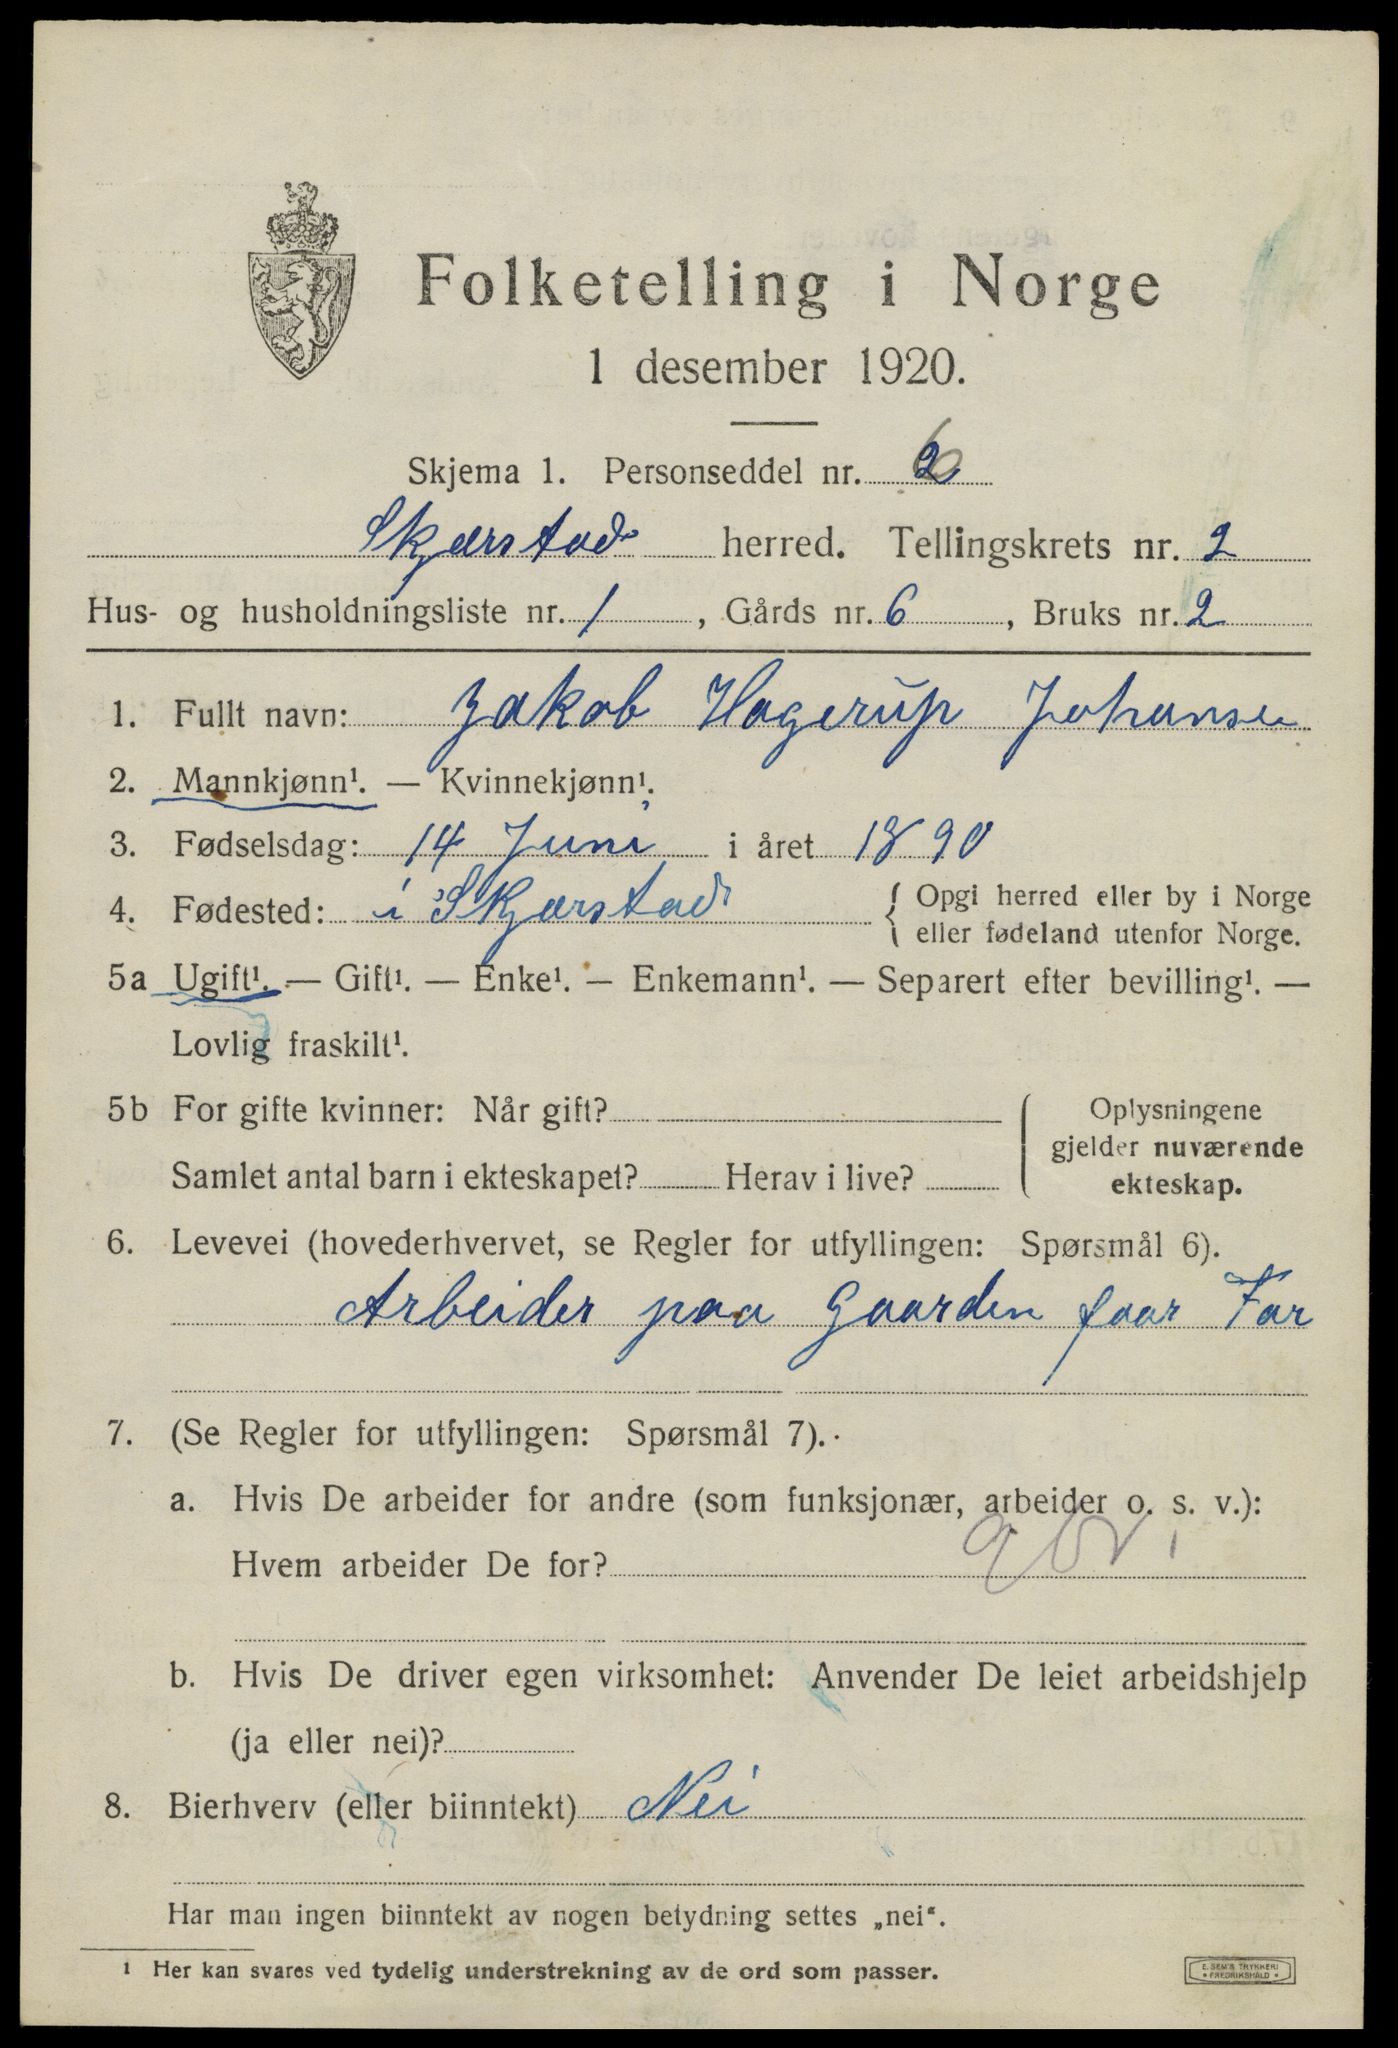 Folketelling i Norge
1 desember 1920.
Skjema 1. Personseddel nr. 2
Skjerstad herred. Tellingskrets nr. 2
Hus- og husholdningsliste nr. 1, Gårds nr. 6, Bruks nr. 2
1. Fullt navn: Jakob Hagerup Johansen
2. Mannkjønn¹. — Kvinnekjønn¹.
3. Fødselsdag: 14 Juni i året 1890
4. Fødested: i Skjerstad { Opgi herred eller by i Norge
eller fødeland utenfor Norge.
5a Ugift¹. — Gift¹. — Enke¹. — Enkemann¹. — Separert efter bevilling¹. —
Lovlig fraskilt¹.
5b For gifte kvinner: Når gift?
Samlet antal barn i ekteskapet? Herav i live?
{ Oplysningene
gjelder nuværende
ekteskap.
6. Levevei (hovederhvervet, se Regler for utfyllingen: Spørsmål 6).
Arbeider paa Gaarden faar Far
7. (Se Regler for utfyllingen: Spørsmål 7).
a. Hvis De arbeider for andre (som funksjonær, arbeider o. s. v.):
Hvem arbeider De for?
b. Hvis De driver egen virksomhet: Anvender De leiet arbeidshjelp
(ja eller nei)?
8. Bierhverv (eller biinntekt) Nei
Har man ingen biinntekt av nogen betydning settes „nei“.
1 Her kan svares ved tydelig understrekning av de ord som passer.
E. SEM'S TRYKKERI
• FREDRIKSHALD •